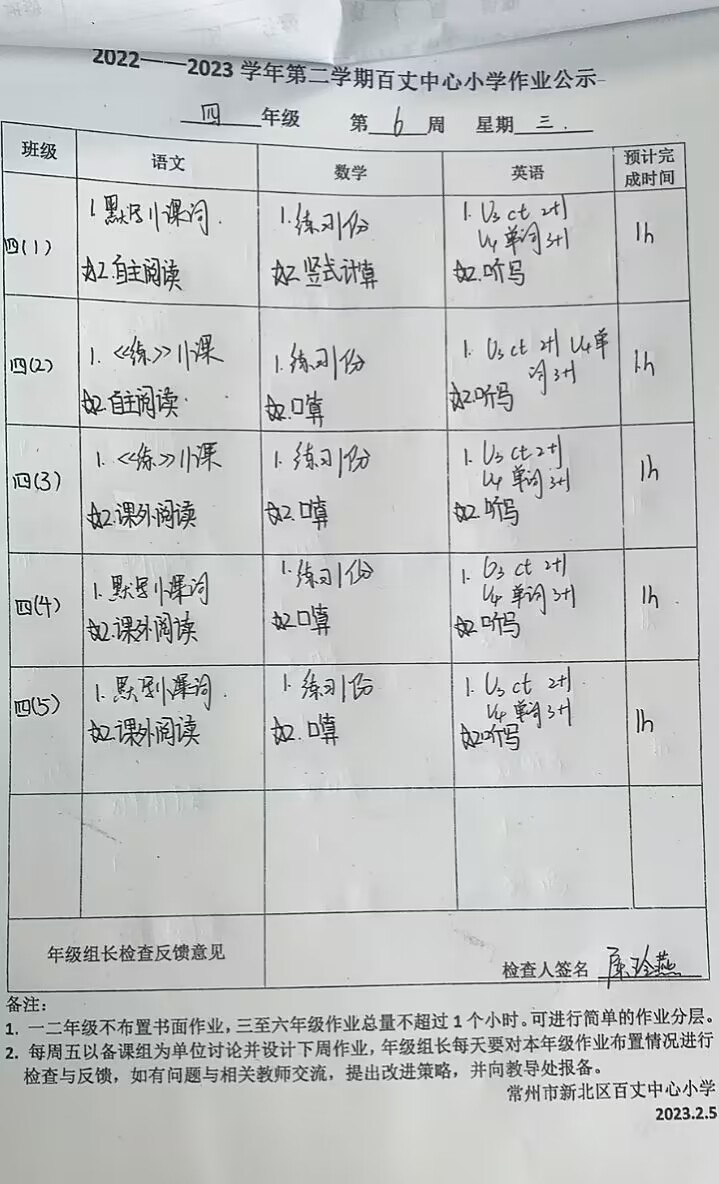 2022——2023 学年第二学期百丈中心小学作业公示
四 年级 第 6 周 星期 三.
班级 语文 数学 英语 预计完成时间
四(1)
1.默写11课词.
2.自主阅读
1.练习1份
2.竖式计算
1. U3 ct 2+1
U4 单词 3+1
2.听写
1h
四(2)
1.《练》11课
2.自主阅读.
1.练习1份
2.口算
1. U3 ct 2+1 U4单
词 3+1
2.听写
1h
四(3)
1.《练》11课
2.课外阅读
1.练习1份
2.口算
1. U3 ct 2+1
U4 单词 3+1
2.听写
1h
四(4)
1.默写11课词
2.课外阅读
1.练习1份
2.口算
1. U3 ct 2+1
U4 单词 3+1
2.听写
1h
四(5)
1.默写11课词.
2.课外阅读
1.练习1份
2.口算
1. U3 ct 2+1
U4 单词 3+1
2.听写
1h
年级组长检查反馈意见
检查人签名
备注:
1. 一二年级不布置书面作业，三至六年级作业总量不超过 1 个小时。可进行简单的作业分层。
2. 每周五以备课组为单位讨论并设计下周作业，年级组长每天要对本年级作业布置情况进行
检查与反馈，如有问题与相关教师交流，提出改进策略，并向教导处报备。
常州市新北区百丈中心小学
2023.2.5